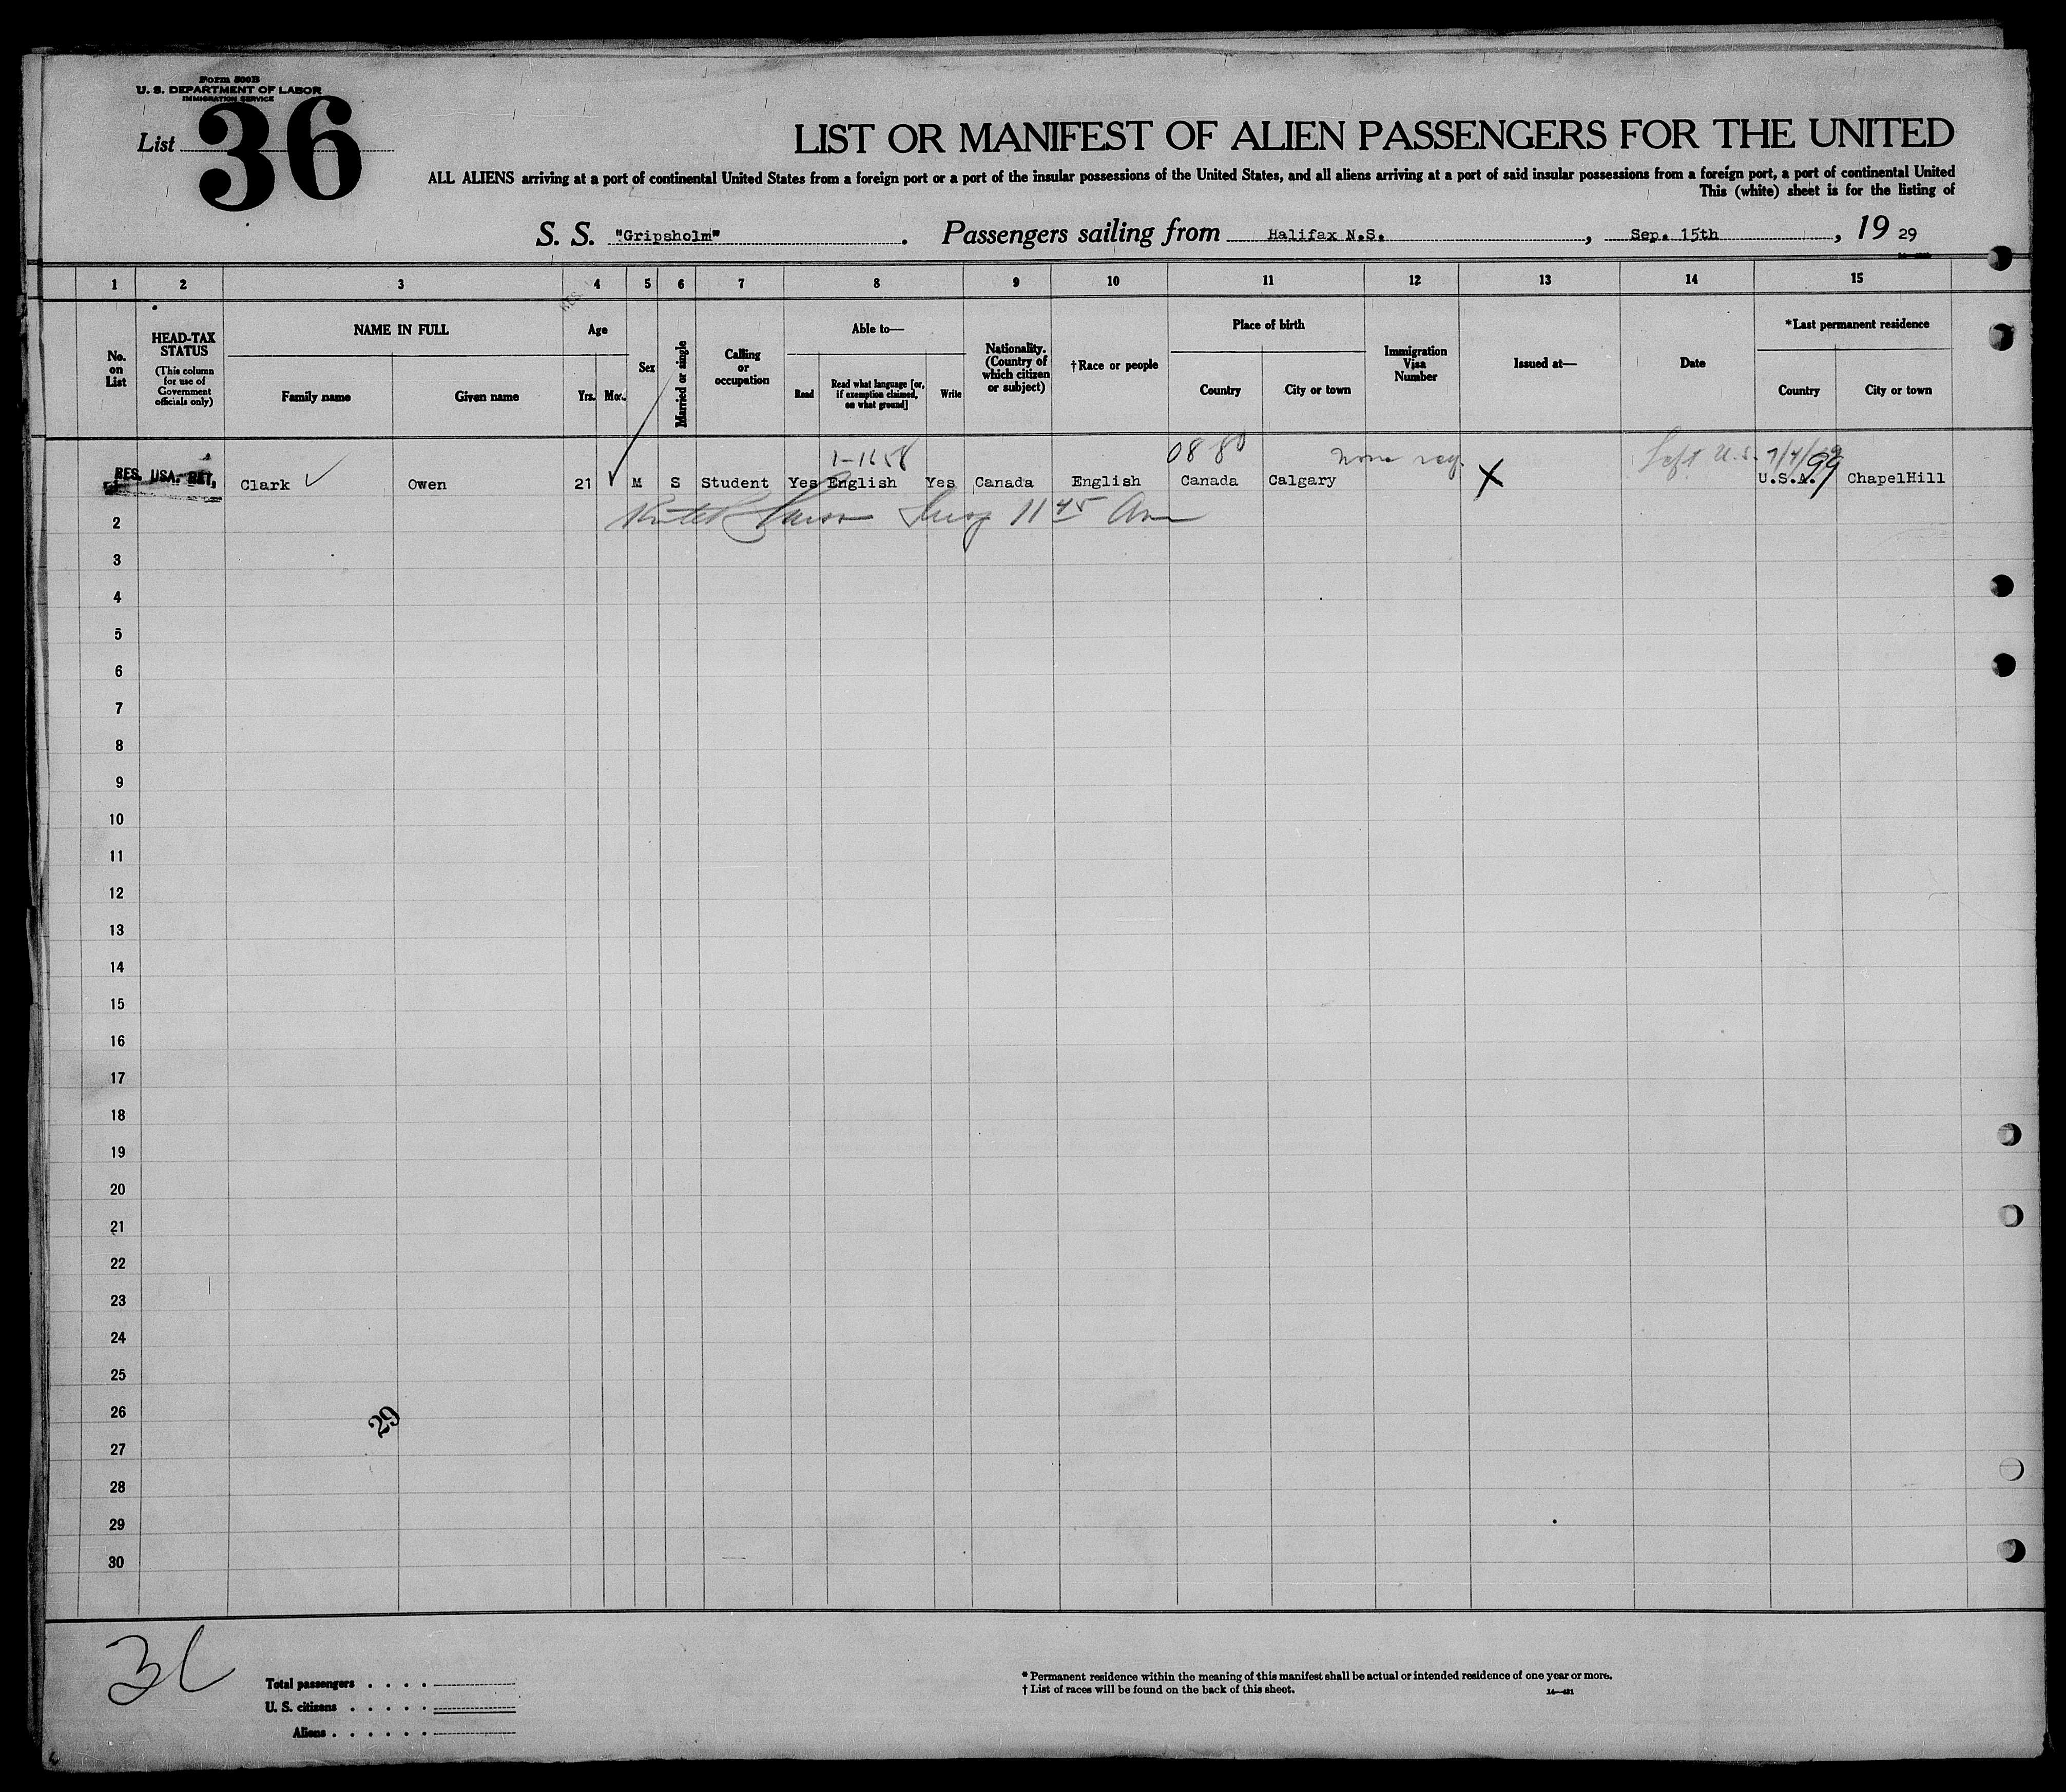 Form 500B
U. S. DEPARTMENT OF LABOR
IMMIGRATION SERVICE
List 36
LIST OR MANIFEST OF ALIEN PASSENGERS FOR THE UNITED
ALL ALIENS arriving at a port of continental United States from a foreign port or a port of the insular possessions of the United States, and all aliens arriving at a port of said insular possessions from a foreign port, a port of continental United
This (white) sheet is for the listing of
S. S. "Gripsholm". Passengers sailing from Halifax N.S., Sep. 15th, 19 29
1 2 3 4 5 6 7 8 9 10 11 12 13 14 15
No. on List
HEAD-TAX STATUS (This column for use of Government officials only)
NAME IN FULL
Family name Given name
Age
Yrs. Mos.
Sex
Married or single
Calling or occupation
Able to—
Read Read what language [or, if exemption claimed, on what ground] Write
Nationality. (Country of which citizen or subject)
†Race or people
Place of birth
Country City or town
Immigration Visa Number
Issued at—
Date
*Last permanent residence
Country City or town
1-1658 0880 Left U.S.
RES. USA. RET. Clark Owen 21 M S Student Yes English Yes Canada English Canada Calgary X U.S.A. 99 ChapelHill
2 11 45
3
4
5
6
7
8
9
10
11
12
13
14
15
16
17
18
19
20
21
22
23
24
25
26
29
27
28
29
30
Total passengers
U. S. citizens
Aliens
* Permanent residence within the meaning of this manifest shall be actual or intended residence of one year or more.
† List of races will be found on the back of this sheet.